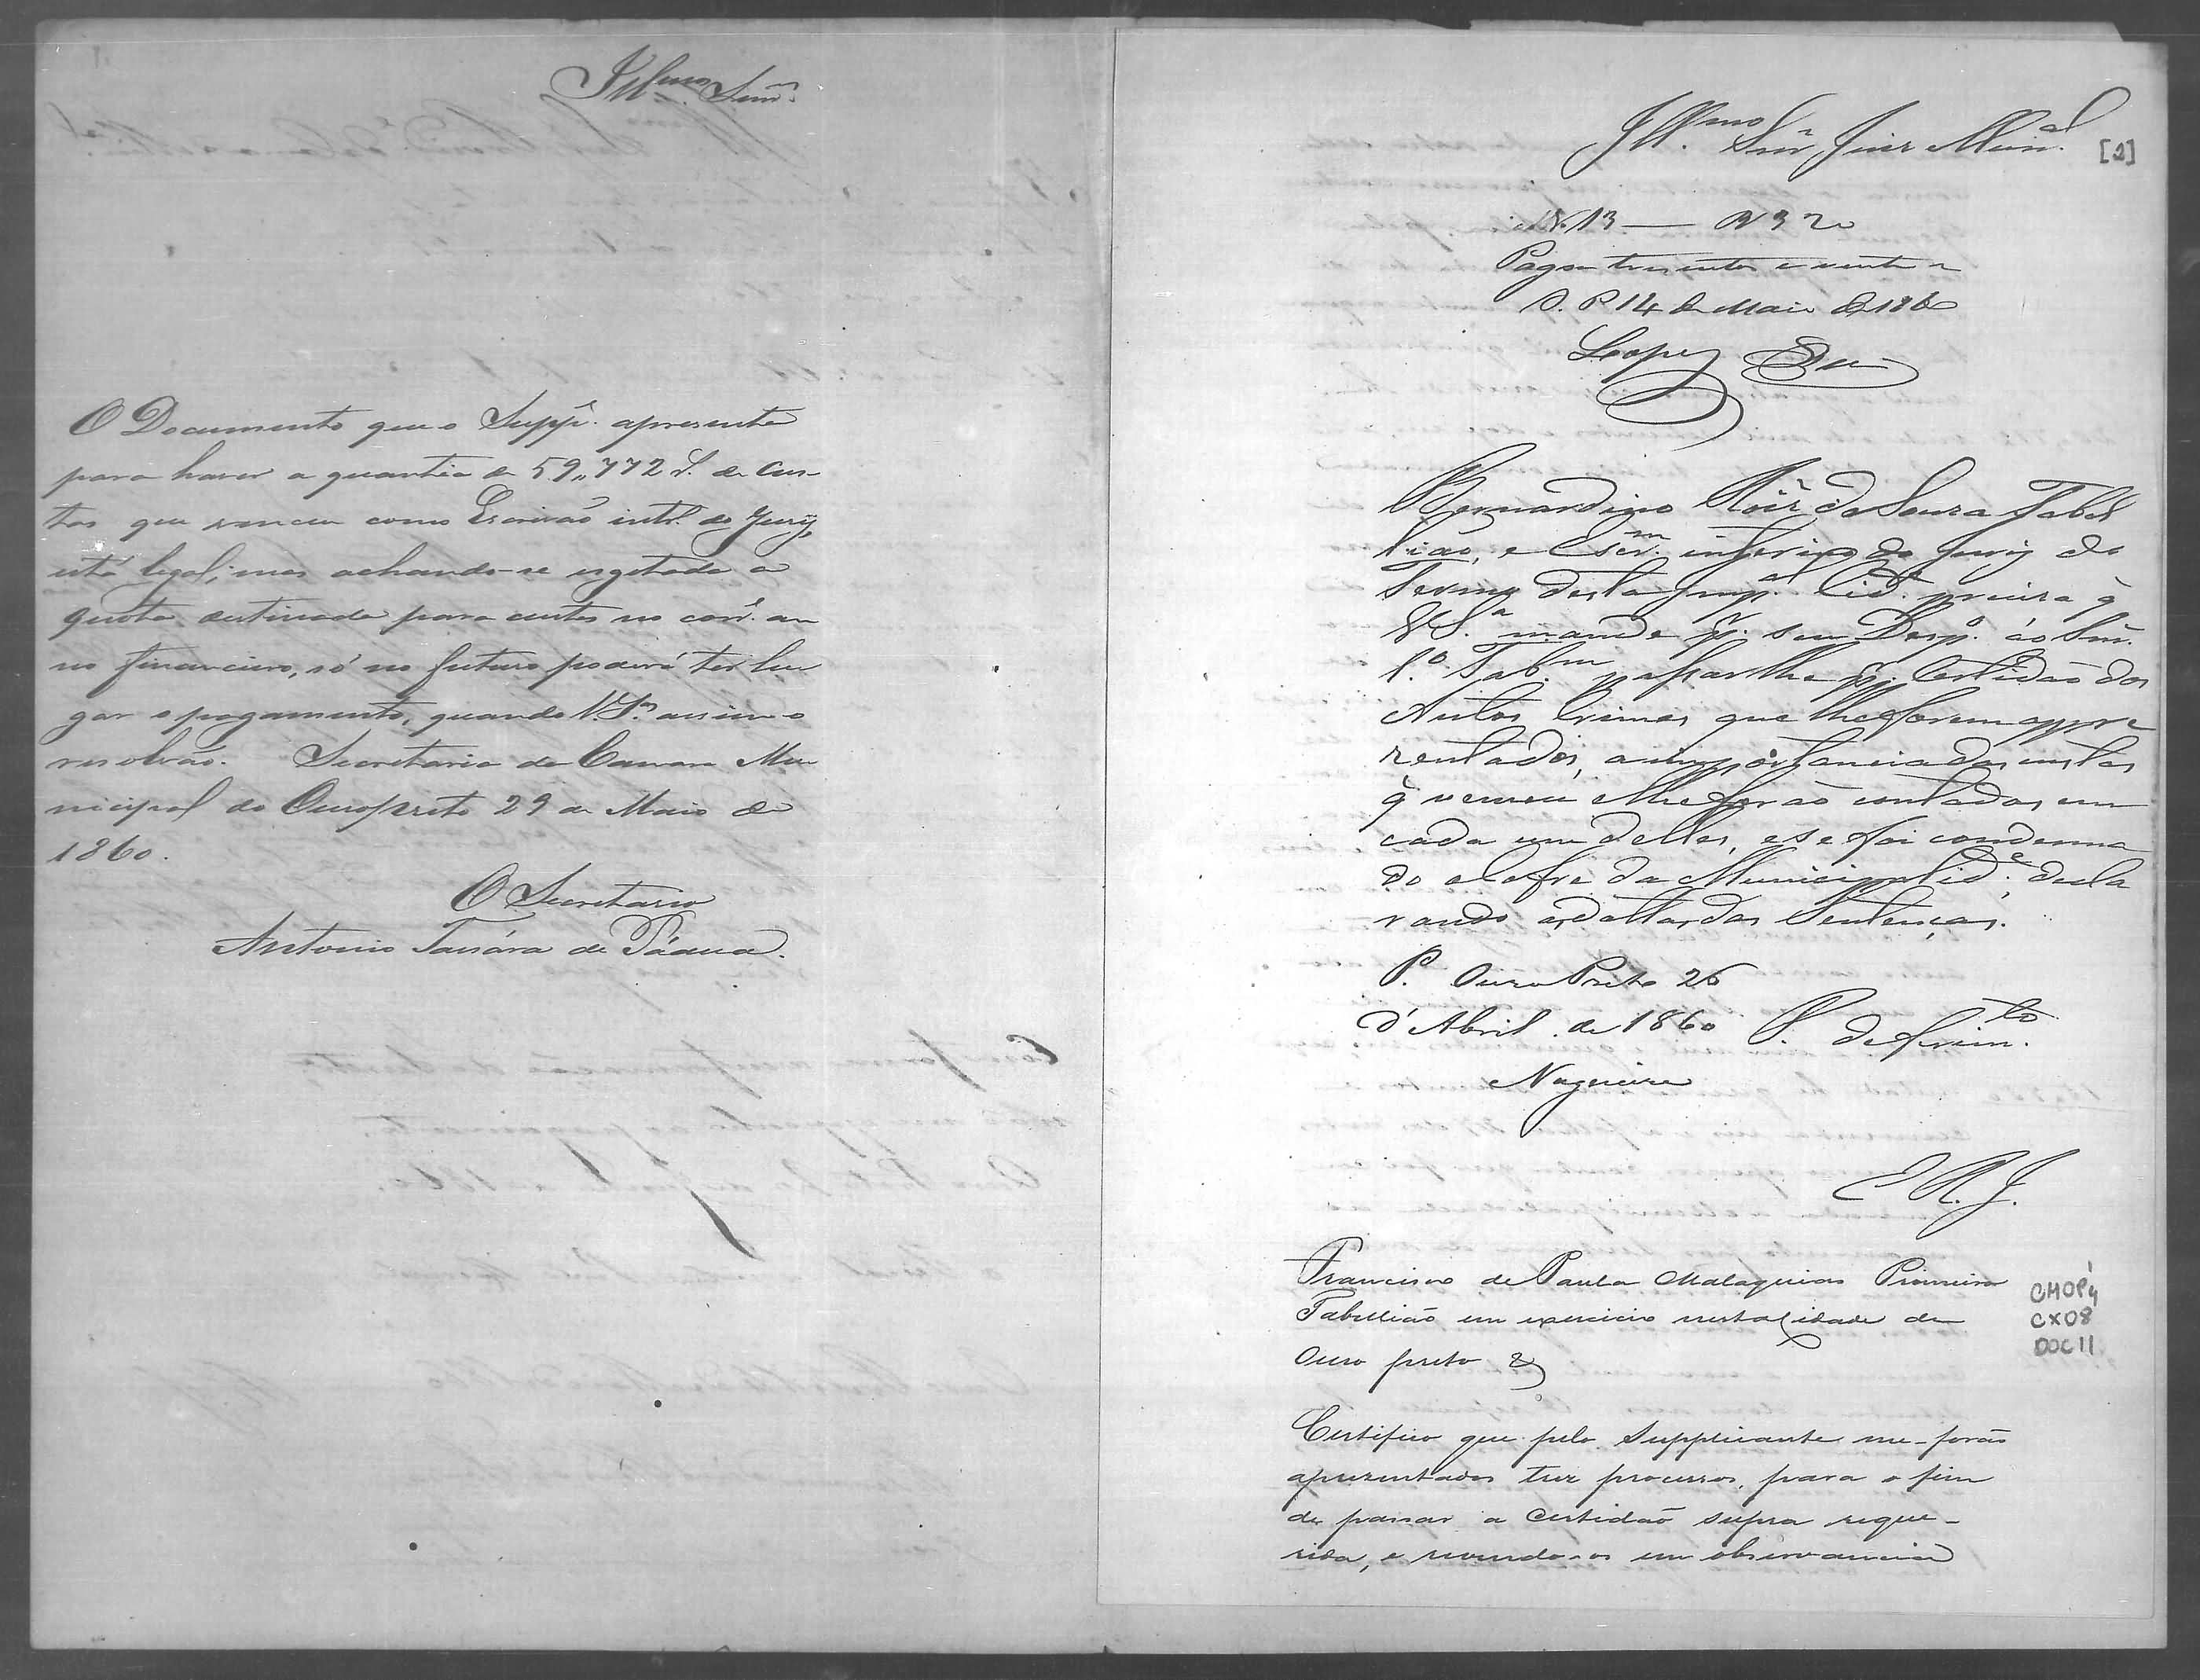 Illmo. Senr.
O Documento que o Suppe. apresenta
para haver a quantia de 59,,772 rs. de Cus-
tas que venceu como Escrivão intr.o do Jury,
está legal; mas achando-se esgotada a
quota destinada para custas no corre. an
no financeiro, só no futuro poderá ter lu
gar o pagamento, quando V.Sa. assim o
resolvão. Secretaria da Camara Mu
nicipal do Ouropreto 29 de Maio de
1860.
O Secretario
Antonio Tassára de Pádua.
Illmo. Snr. Juiz Munal.
[2]
N. 13 — R 320
Pagou trezentos e vinte rs
O. P. 14 de Maio de 1860
Lopes
Bernardino Roiz de Souza Tabel
lião, e Escrm. interino do Jury do
Termo desta Impal. Cide. precisa q̃
V Sa. mande pr. seu Despo. ao Snr.
1o. Tabm. passar lhe pr. Certidão dos
Autos Crimes que lhe forem appre
zentados, a importancia das custas
q̃ venceu e lhe forão contadas em
cada um delles, e se foi condemna
do o cofre da Municipalide., decla
rando as dattas das Sentenças.
P. Ouro Preto 26
d'Abril de 1860
P. deferimto.
Nogueira
E R. J.
Francisco de Paula Malaquias Primeiro
Tabellião em exercicio nesta Cidade de
Ouro preto &
CMOP
CX08
DOC11
Certifico que pelo Supplicante me-forão
aprezentados trez processos, para o fim
de passar a Certidão supra reque-
rida, e revendo-os em observancia